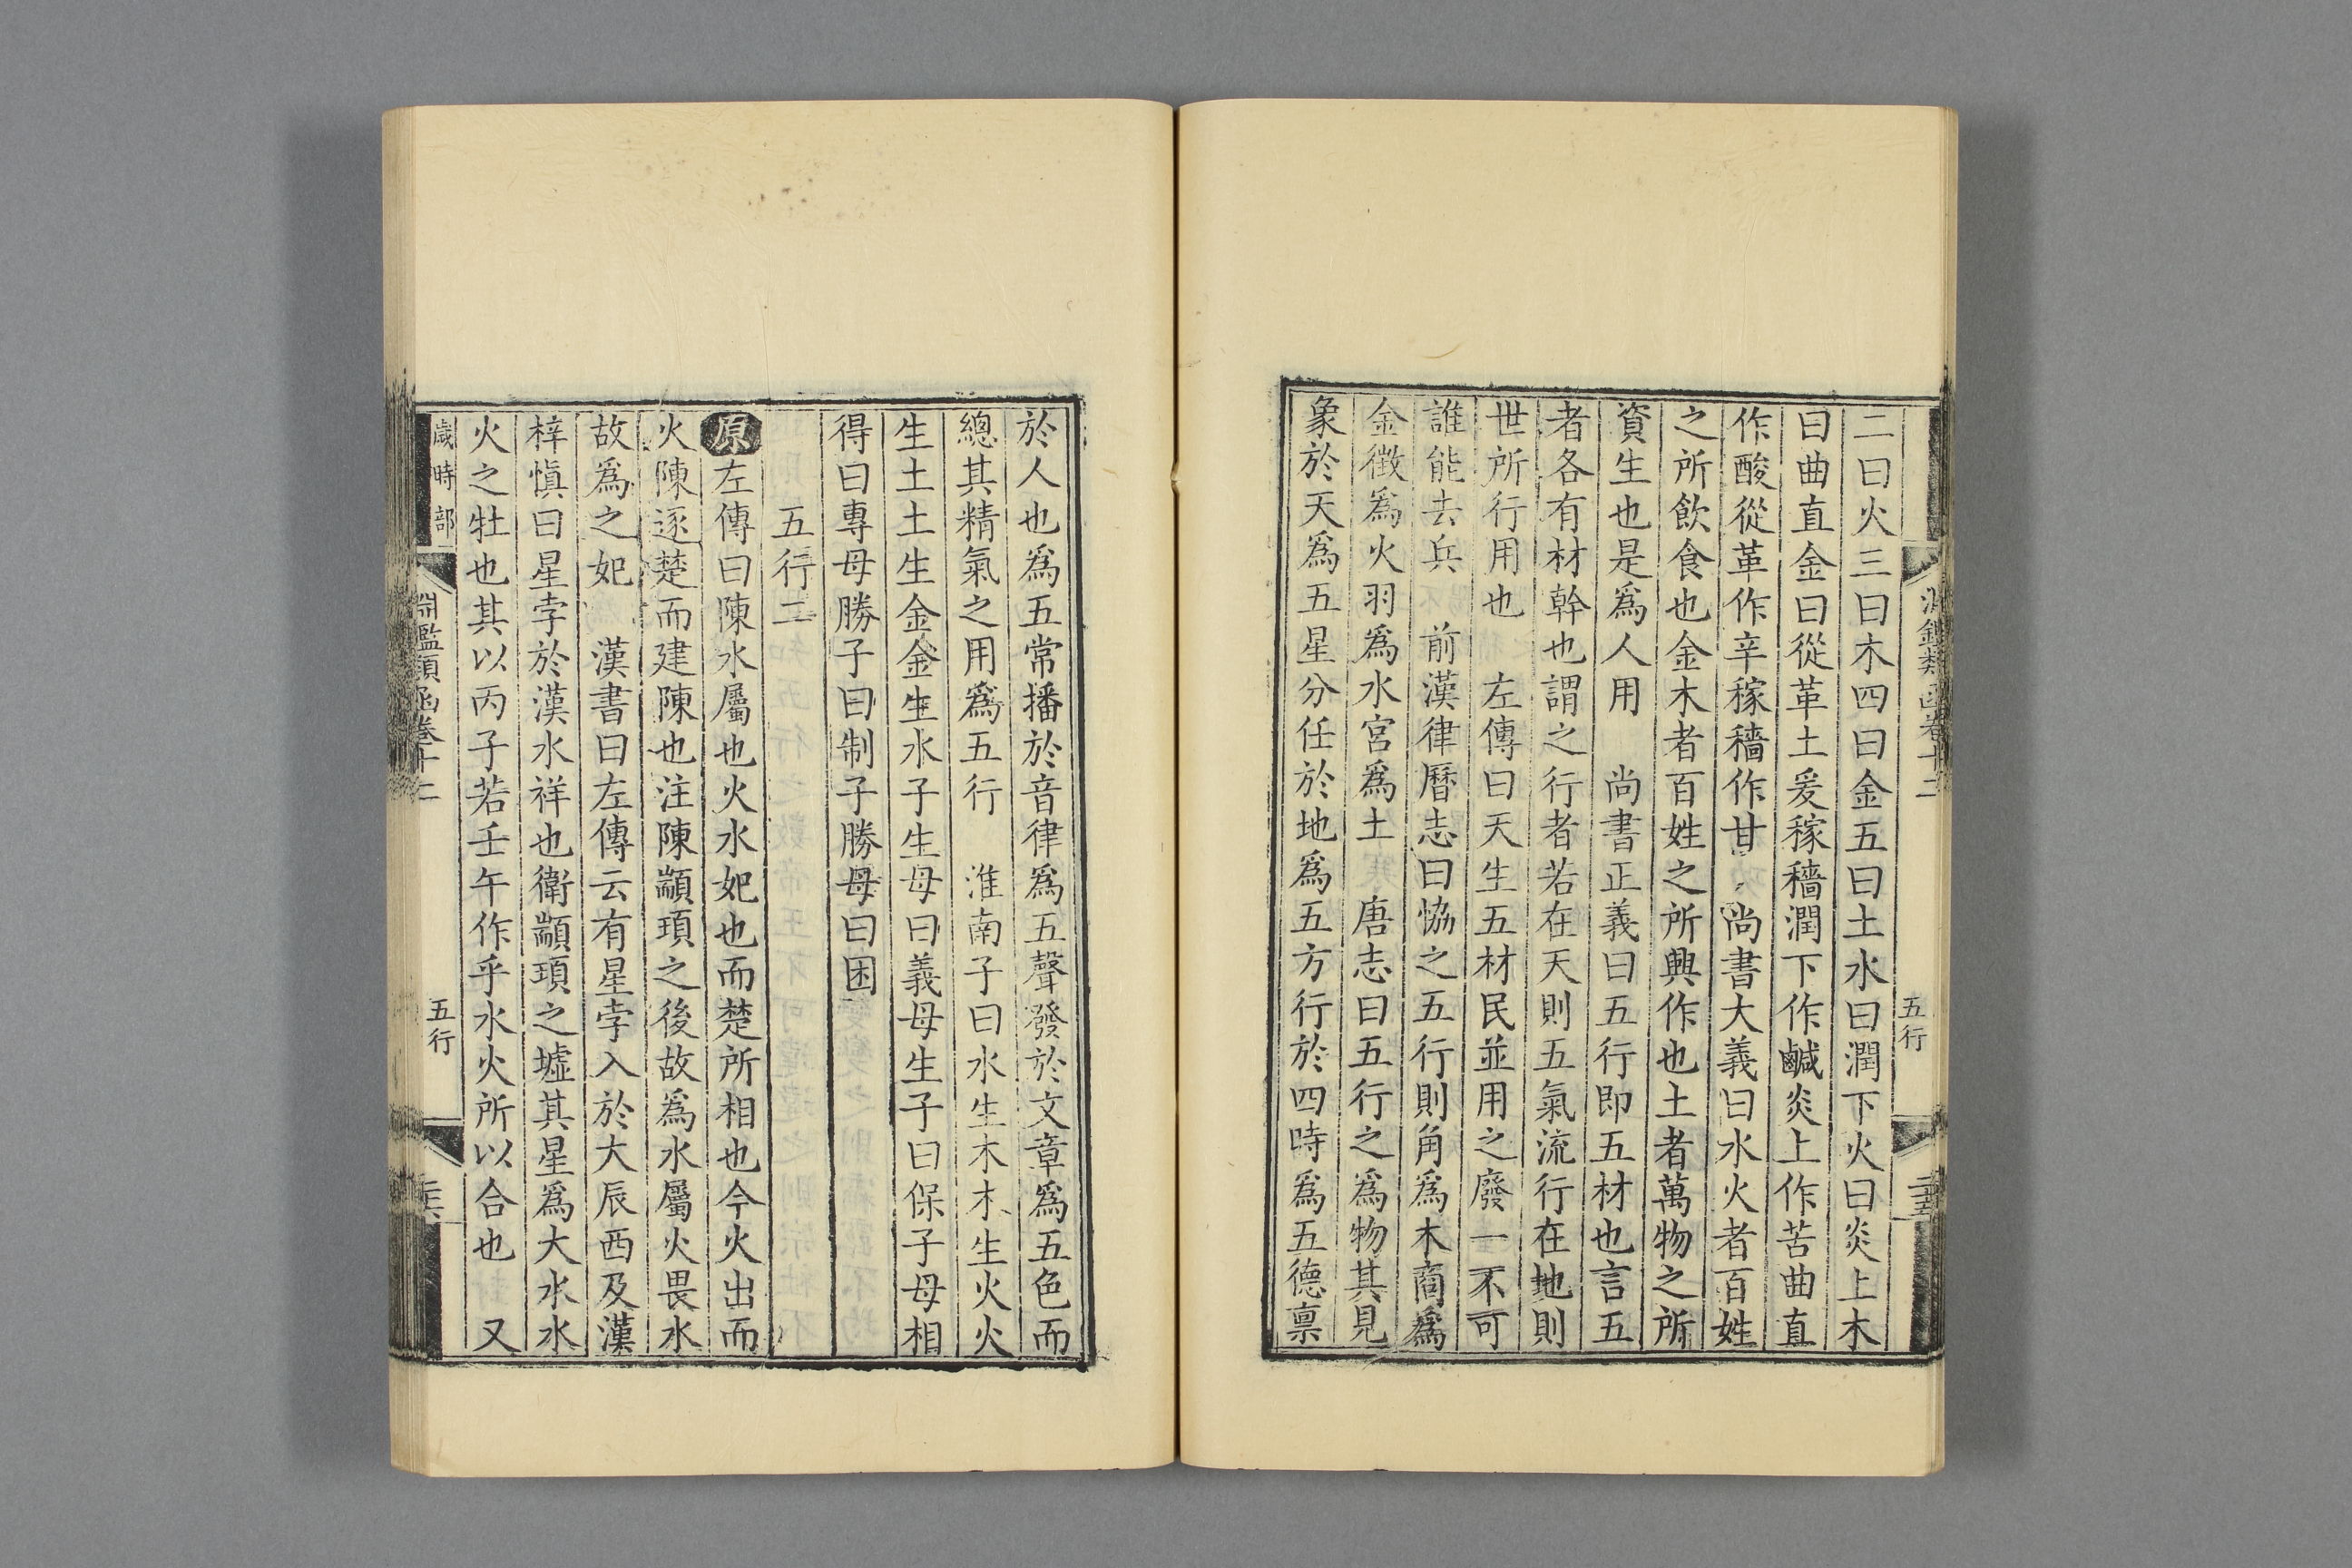 淵鑑類函卷十二
五行
二曰火三曰木四曰金五曰土水曰潤下火曰炎上木
曰曲直金曰從革土爰稼穡潤下作鹹炎上作苦曲直
作酸從革作辛稼穡作甘 尚書大義曰水火者百姓
之所飲食也金木者百姓之所興作也土者萬物之所
資生也是爲人用 尚書正義曰五行即五材也言五
者各有材幹也謂之行者若在天則五氣流行在地則
世所行用也 左傳曰天生五材民並用之廢一不可
誰能去兵 前漢律曆志曰協之五行則角爲木商爲
金徵爲火羽爲水宮爲土 唐志曰五行之爲物其見
象於天爲五星分任於地爲五方行於四時爲五德禀
於人也爲五常播於音律爲五聲發於文章爲五色而
總其精氣之用爲五行 淮南子曰水生木木生火火
生土土生金金生水子生母曰義母生子曰保子母相
得曰專母勝子曰制子勝母曰困
五行二
原左傳曰陳水屬也火水妃也而楚所相也今火出而
火陳逐楚而建陳也注陳顓頊之後故爲水屬火畏水
故爲之妃 漢書曰左傳云有星孛入於大辰西及漢
梓慎曰星孛於漢水祥也衛顓頊之墟其星爲大水水
火之牡也其以丙子若壬午作乎水火所以合也 又
歲時部
淵鑑類函卷十二
五行